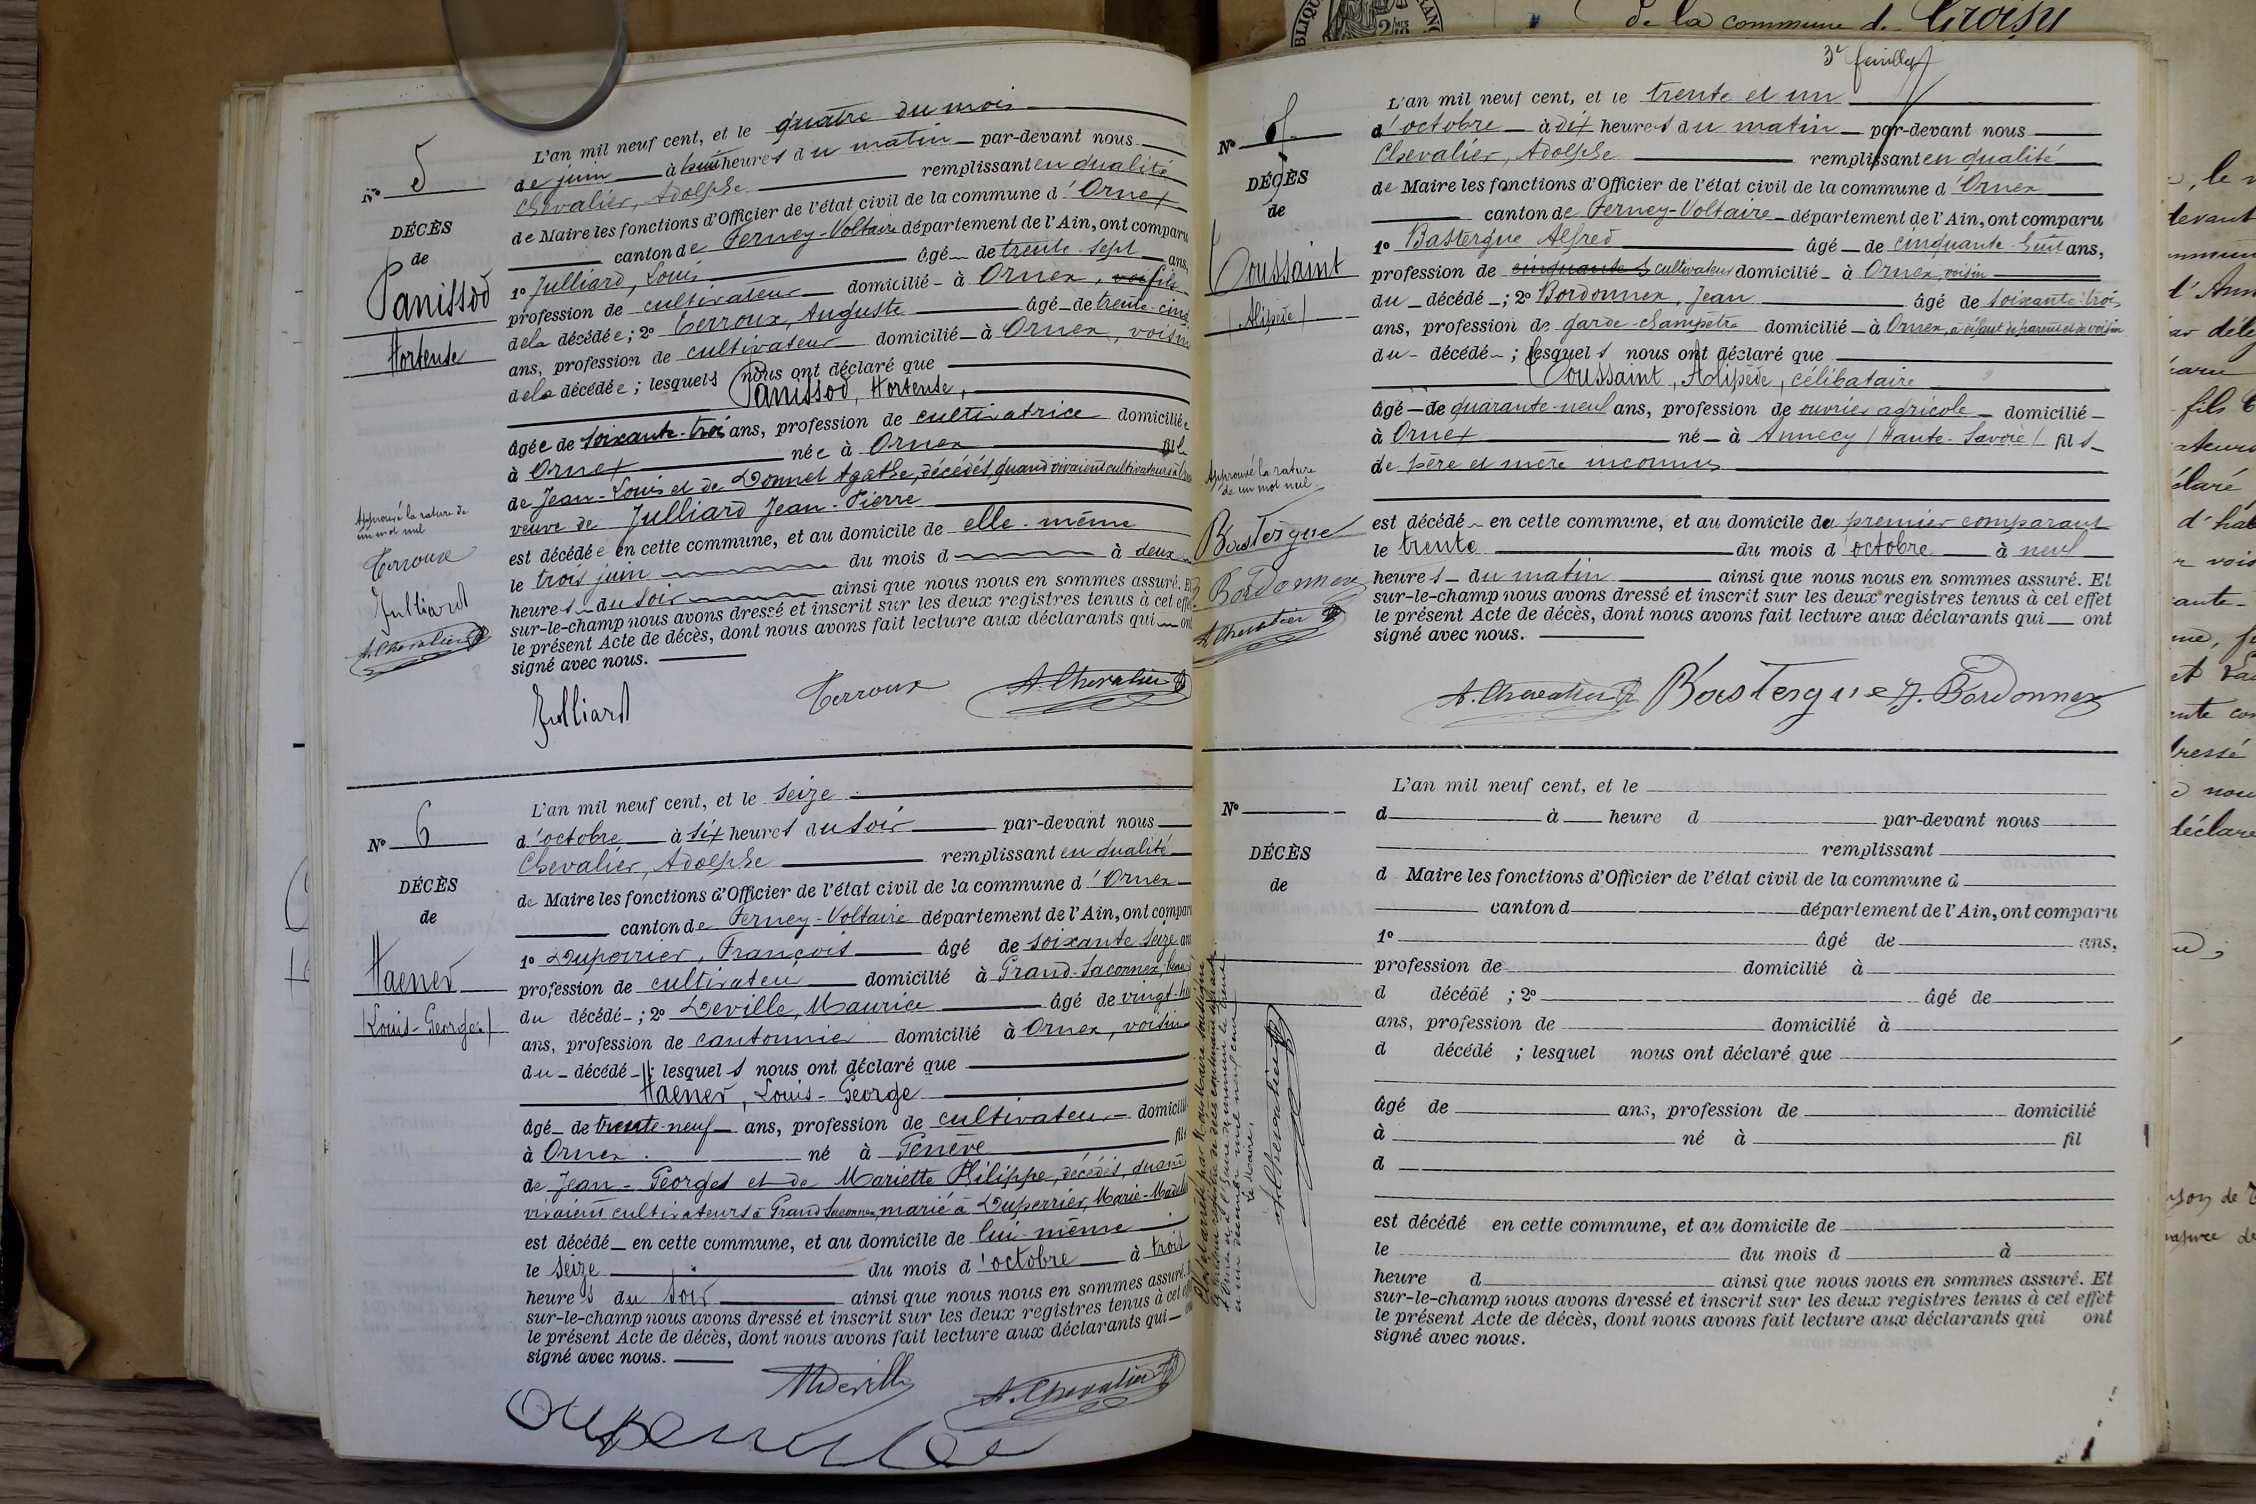 de la commune d. Croisy
N° 5
DÉCÈS
de
Panissod
Hortense
Approuvé la rature de
un mot nul
Terroux
Julliard
A. Chevalier
L'an mil neuf cent, et le quatre du mois
de juin à huit heures du matin par-devant nous
Chevalier, Adolphe remplissant en qualité
de Maire les fonctions d'Officier de l'état civil de la commune d'Ornex
canton de Ferney-Voltaire département de l'Ain, ont comparu
1° Julliard, Louis âgé de trente-sept ans,
profession de cultivateur domicilié à Ornex, fils
de la décédée; 2° Terroux, Auguste âgé de trente-cinq
ans, profession de cultivateur domicilié à Ornex, voisin
de la décédée; lesquels nous ont déclaré que
Panissod, Hortense,
âgée de soixante-trois ans, profession de cultivatrice domiciliée
à Ornex née à Ornex fille
de Jean-Louis et de Donnet Agathe, décédés, quand vivaient cultivateurs à
veuve de Julliard Jean-Pierre
est décédée en cette commune, et au domicile de elle-même
le trois juin du mois d à deux
heures du soir ainsi que nous nous en sommes assuré. Et
sur-le-champ nous avons dressé et inscrit sur les deux registres tenus à cet effet
le présent Acte de décès, dont nous avons fait lecture aux déclarants qui ont
signé avec nous.
Julliard Terroux A. Chevalier
N° 6
DÉCÈS
de
Haener
(Louis-George)
L'an mil neuf cent, et le seize
d'octobre à six heures du soir par-devant nous
Chevalier, Adolphe remplissant en qualité
de Maire les fonctions d'Officier de l'état civil de la commune d'Ornex
canton de Ferney-Voltaire département de l'Ain, ont comparu
1° Duperrier, François âgé de soixante seize ans
profession de cultivateur domicilié à Grand-Saconnex,
du décédé; 2° Deville, Maurice âgé de vingt-
ans, profession de cantonnier domicilié à Ornex, voisin
du décédé; lesquels nous ont déclaré que
Haener, Louis-George
âgé de trente-neuf ans, profession de cultivateur domicilié
à Ornex né à Genève fils
de Jean-Georges et de Mariette Philippe, décédés, quand
vivaient cultivateurs à Grand Saconnex, marié à Duperrier, Marie-
est décédé en cette commune, et au domicile de lui-même
le seize du mois d'octobre à trois
heures du soir ainsi que nous nous en sommes assuré.
sur-le-champ nous avons dressé et inscrit sur les deux registres tenus à cet effet
le présent Acte de décès, dont nous avons fait lecture aux déclarants qui
signé avec nous.
MDeville A. Chevalier
Duperrier
3e feuillet
N°
DÉCÈS
de
Toussaint
(Alipède)
Approuvé la rature
de un mot nul
Bastergue
J. Bordonnex
A. Chevalier
L'an mil neuf cent, et le trente et un
d'octobre à dix heures du matin par-devant nous
Chevalier, Adolphe remplissant en qualité
de Maire les fonctions d'Officier de l'état civil de la commune d'Ornex
canton de Ferney-Voltaire département de l'Ain, ont comparu
1° Bastergue Alfred âgé de cinquante-huit ans,
profession de cinquante cultivateur domicilié à Ornex, voisin
du décédé; 2° Bordonnex, Jean âgé de soixante-trois
ans, profession de garde-champêtre domicilié à Ornex, à défaut de parents et de voisin
du décédé; lesquels nous ont déclaré que
Toussaint, Alipède, célibataire
âgé de quarante-neuf ans, profession de ouvrier agricole domicilié
à Ornex né à Annecy (Haute-Savoie) fils
de père et mère inconnus
est décédé en cette commune, et au domicile du premier comparant
le trente du mois d'octobre à neuf
heures du matin ainsi que nous nous en sommes assuré. Et
sur-le-champ nous avons dressé et inscrit sur les deux registres tenus à cet effet
le présent Acte de décès, dont nous avons fait lecture aux déclarants qui ont
signé avec nous.
A. Chevalier Bastergue J. Bordonnex
N°
DÉCÈS
de
Clos et arrêté par Nous Maire soussigné
le présent registre de décès
d'Ornex
décembre mil neuf cent
Le Maire,
A. Chevalier
L'an mil neuf cent, et le
d à heure d par-devant nous
remplissant
d Maire les fonctions d'Officier de l'état civil de la commune d
canton d département de l'Ain, ont comparu
1° âgé de ans,
profession de domicilié à
d décédé ; 2° âgé de
ans, profession de domicilié à
d décédé ; lesquel nous ont déclaré que
âgé de ans, profession de domicilié
à né à fil
d
est décédé en cette commune, et au domicile de
le du mois d à
heure d ainsi que nous nous en sommes assuré. Et
sur-le-champ nous avons dressé et inscrit sur les deux registres tenus à cet effet
le présent Acte de décès, dont nous avons fait lecture aux déclarants qui ont
signé avec nous.